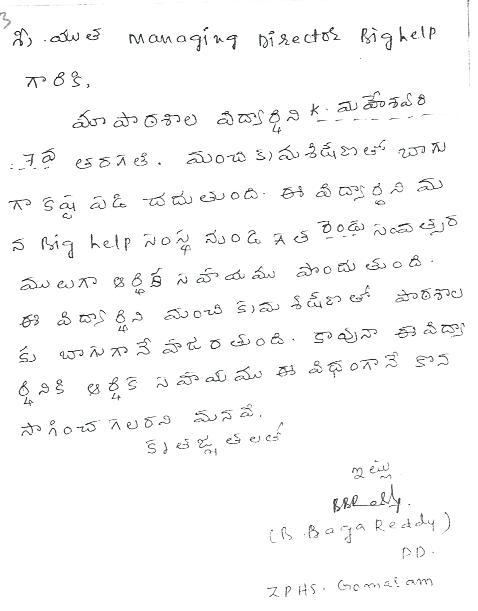 3
శ్రీ. యుత Managing Director Bighelp
గారికి,
మా పాఠశాల విద్యార్థిని K. మహేశ్వరి
7వ తరగతి. మంచి క్రమశిక్షణతో బాగు
గా కష్ట పడి చదుతుంది. ఈ విద్యార్థిని మ
న Big help సంస్థ నుండి గత రెండు సంవత్సర
ములుగా ఆర్థిక సహాయము పొందుతుంది.
ఈ విద్యార్థిని మంచి క్రమశిక్షణతో పాఠశాల
కు బాగుగానే హాజరతుంది. కావునా ఈ విద్యా
ర్థినికి ఆర్థిక సహాయము ఈ విధంగానే కొన
సాగించగలరని మనవి.
కృతజ్ఞతలతో
ఇట్లు
BBReddy.
(B. Baga Reddy)
PD.
ZPHS. Gomaram